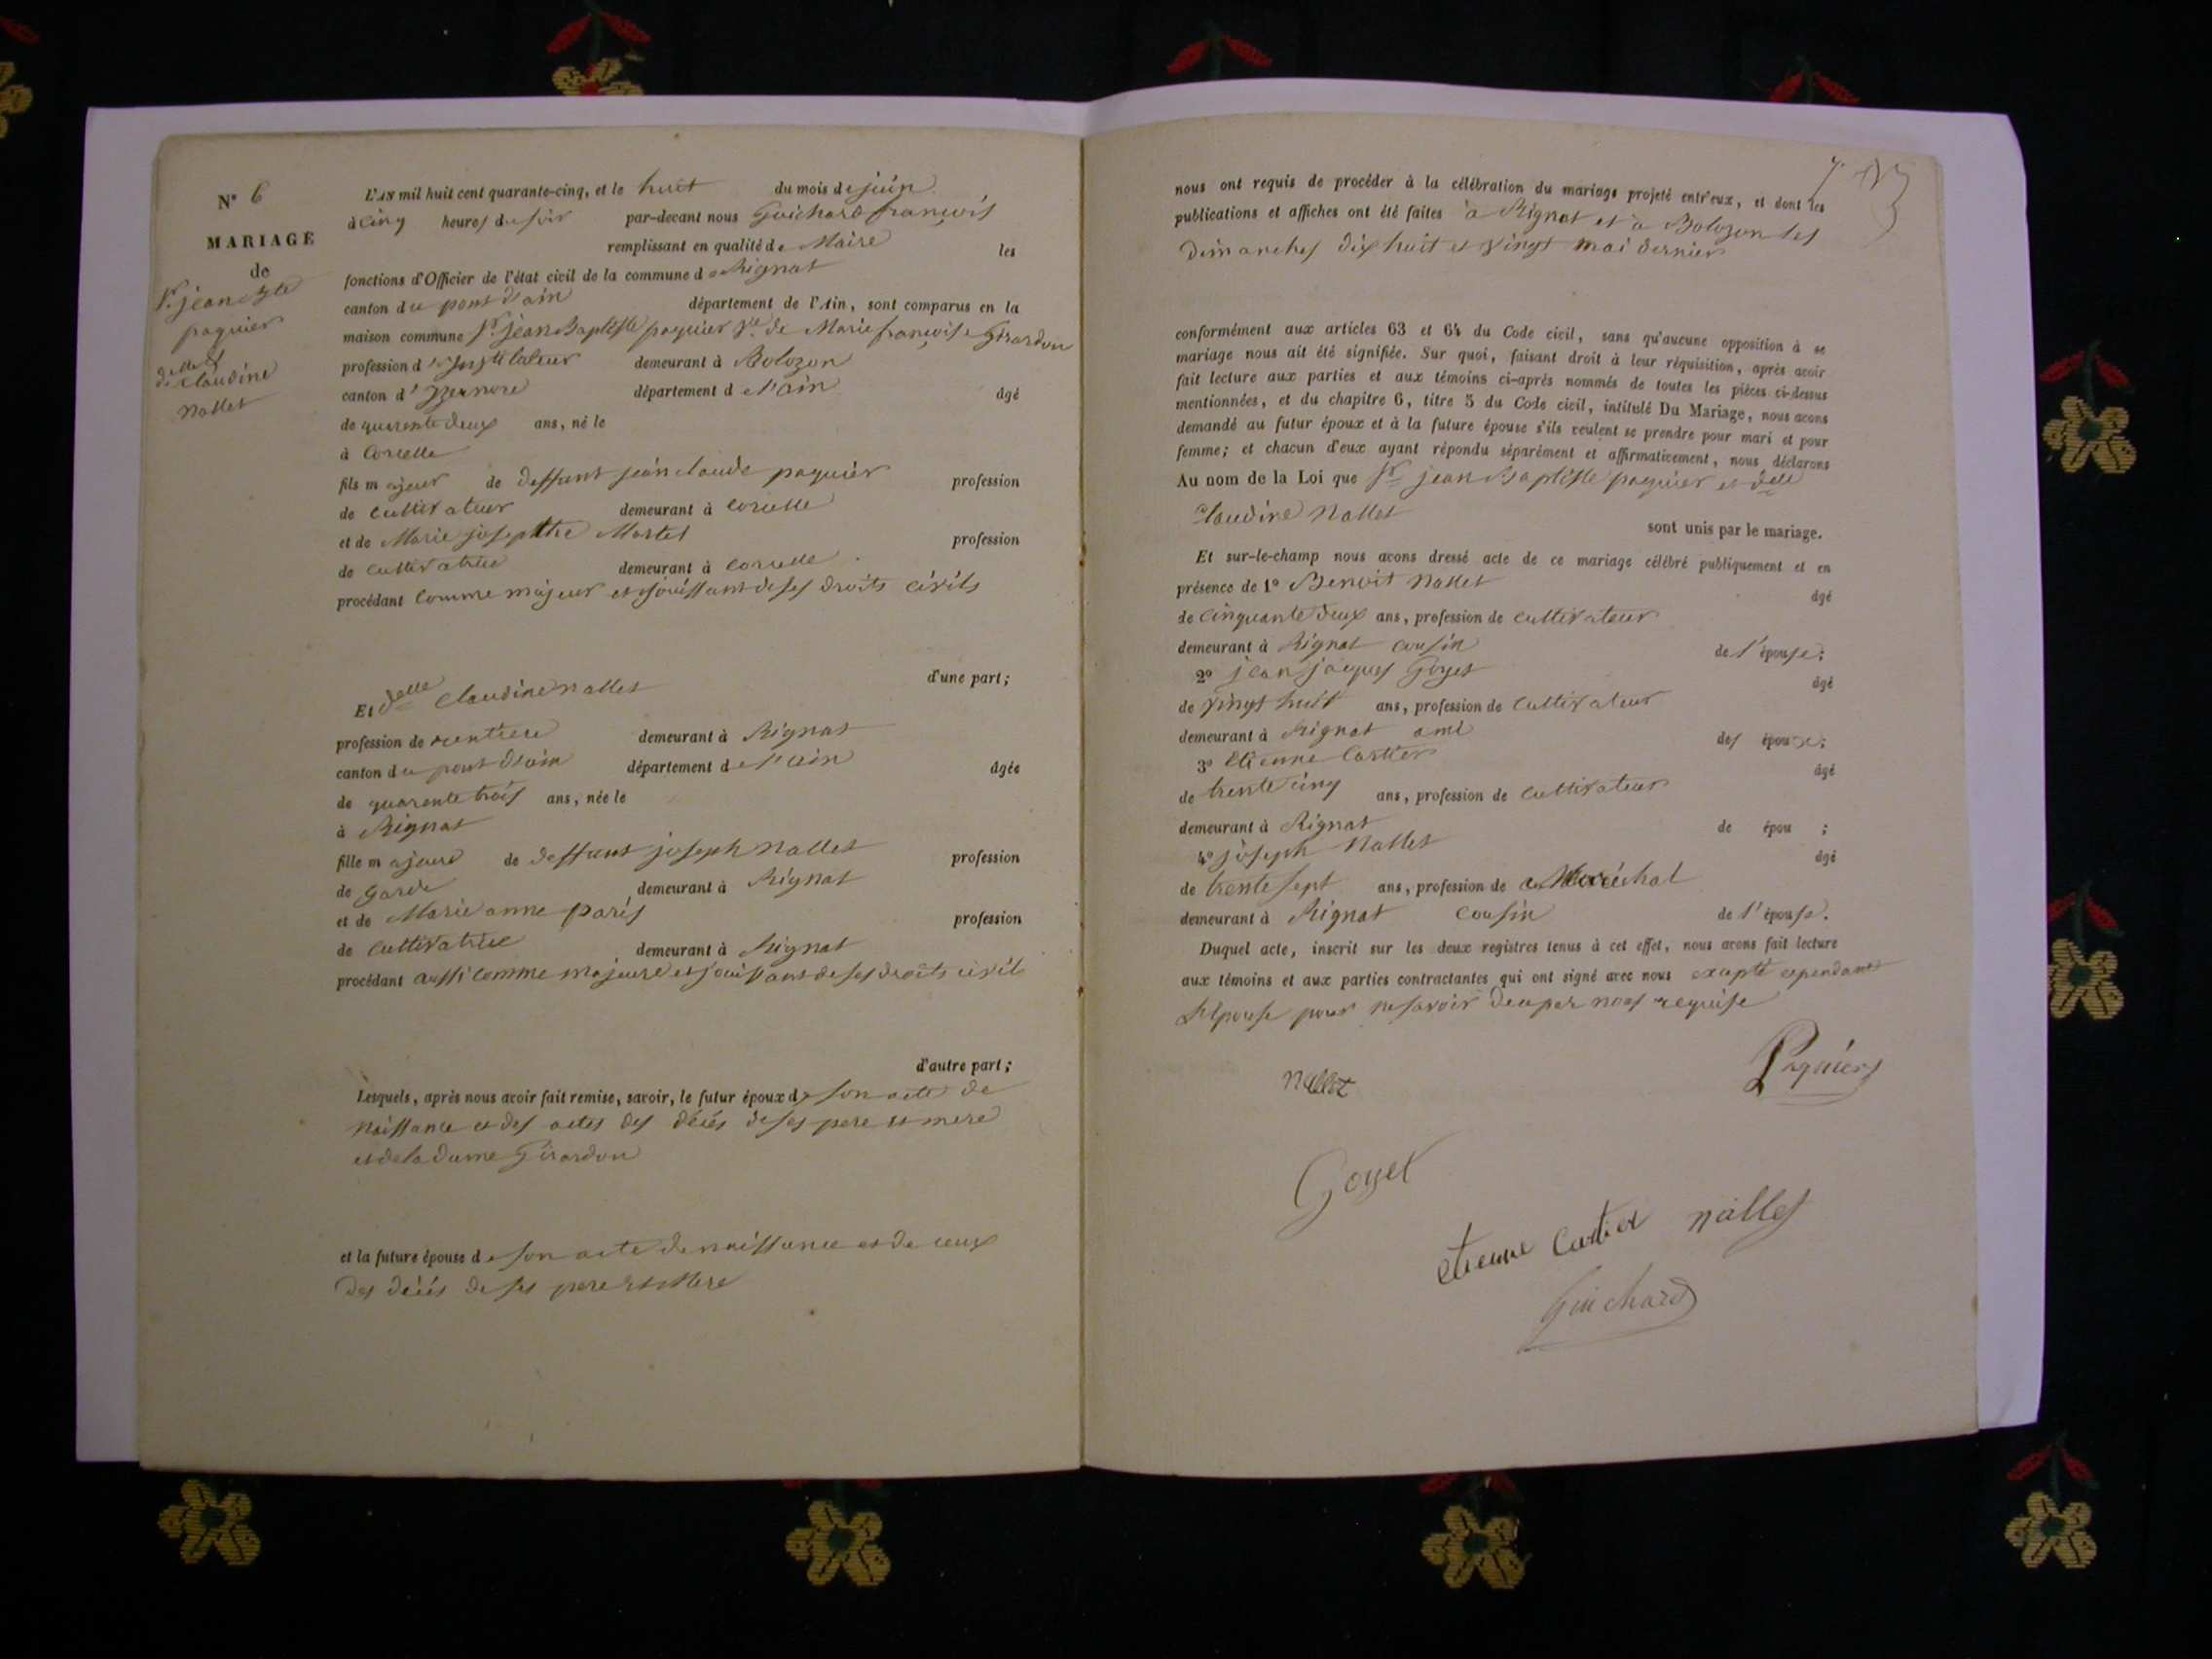 N° 6
MARIAGE
de
Sr. jean Bte
paquier
et
delle Claudine
Nallet
L'AN mil huit cent quarante-cinq, et le huit du mois de juin
à cinq heures du soir par-devant nous Guichard françois
remplissant en qualité de Maire les
fonctions d'Officier de l'état civil de la commune de Rignat
canton du pont d'ain département de l'Ain, sont comparus en la
maison commune Sr. jean Baptiste paquier Vf de Marie françoise Girardon
profession d'instituteur demeurant à Bolozon
canton d'Yzernore département de l'ain âgé
de quarente deux ans, né le
à Corcelle
fils majeur de deffunt jean claude paquier profession
de cultivateur demeurant à corcelle
et de Marie josephthe Martel profession
de cultivatrice demeurant à corcelle
procédant comme majeur et jouissant de ses droits civils
d'une part;
Et delle Claudine nallet
profession de rentiere demeurant à Rignat
canton du pont d'ain département de l'ain âgée
de quarente trois ans, née le
à Rignat
fille majeure de deffunt joseph nallet profession
de garde demeurant à Rignat
et de Marie anne paris profession
de cultivatrice demeurant à Rignat
procédant aussi comme majeure et jouissant de ses droits civils
d'autre part;
Lesquels, après nous avoir fait remise, savoir, le futur époux de son acte de
naissance et des actes des décés de ses pere et mere
et de la dame Girardon
et la future épouse de son acte de naissance et de ceux
des décés de ses pere et Mere
nous ont requis de procéder à la célébration du mariage projeté entr'eux, et dont les
publications et affiches ont été faites à Rignat et à Bolozon les
dimanches dix huit et vingt mai dernier
conformément aux articles 63 et 64 du Code civil, sans qu'aucune opposition à se
mariage nous ait été signifiée. Sur quoi, faisant droit à leur réquisition, après avoir
fait lecture aux parties et aux témoins ci-après nommés de toutes les pièces ci-dessus
mentionnées, et du chapitre 6, titre 5 du Code civil, intitulé Du Mariage, nous avons
demandé au futur époux et à la future épouse s'ils veulent se prendre pour mari et pour
femme; et chacun d'eux ayant répondu séparément et affirmativement, nous déclarons
Au nom de la Loi que Sr jean Baptiste paquier et delle
Claudine Nallet
sont unis par le mariage.
Et sur-le-champ nous avons dressé acte de ce mariage célébré publiquement et en
présence de 1° Benoit Nallet âgé
de cinquante deux ans, profession de cultivateur
demeurant à Rignat cousin de l'épouse;
2° jean jacques Goyet âgé
de vingt huit ans, profession de cultivateur
demeurant à Rignat ami des époux;
3° Etienne Cartier âgé
de trente cinq ans, profession de cultivateur
demeurant à Rignat de épou ;
4° joseph Nallet âgé
de trente sept ans, profession de Maréchal
demeurant à Rignat cousin de l'épouse.
Duquel acte, inscrit sur les deux registres tenus à cet effet, nous avons fait lecture
aux témoins et aux parties contractantes qui ont signé avec nous excepté cependant
l'épouse pour ne savoir de ce par nous requise
Nallet
Paquier
Goyet
etienne Cartier
nallet
Guichard